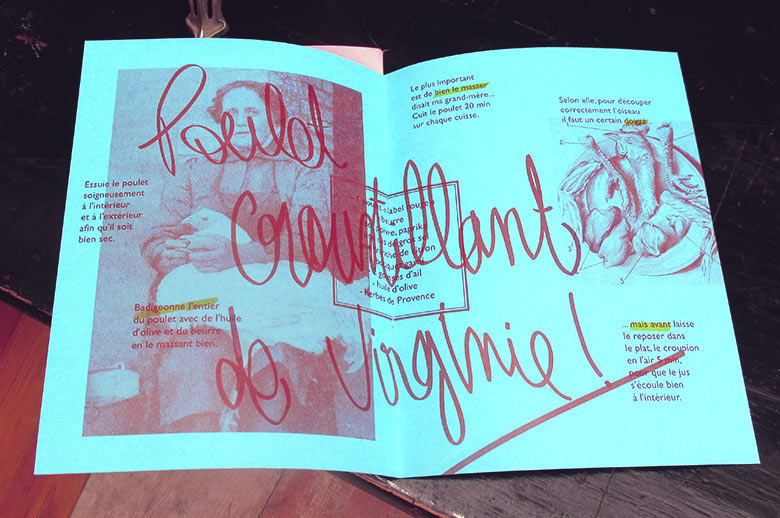 Poulet
croustillant
de Virginie !
Essuie le poulet
soigneusement
à l'intérieur
et à l'extérieur
afin qu'il soit
bien sec.
Badigeonne l'entier
du poulet avec de l'huile
d'olive et du beurre
en le massant bien.
poulet «label rouge»
beurre
poivre, paprika
gros sel
citron
d'ail
- huile d'olive
- herbes de Provence
Le plus important
est de bien le masser
disait ma grand-mère...
Cuit le poulet 20 min
sur chaque cuisse.
Selon elle, pour découper
correctement l'oiseau
il faut un certain doigté
2
3
5
... mais avant laisse
le reposer dans
le plat, le croupion
en l'air 5 min,
pour que le jus
s'écoule bien
à l'intérieur.